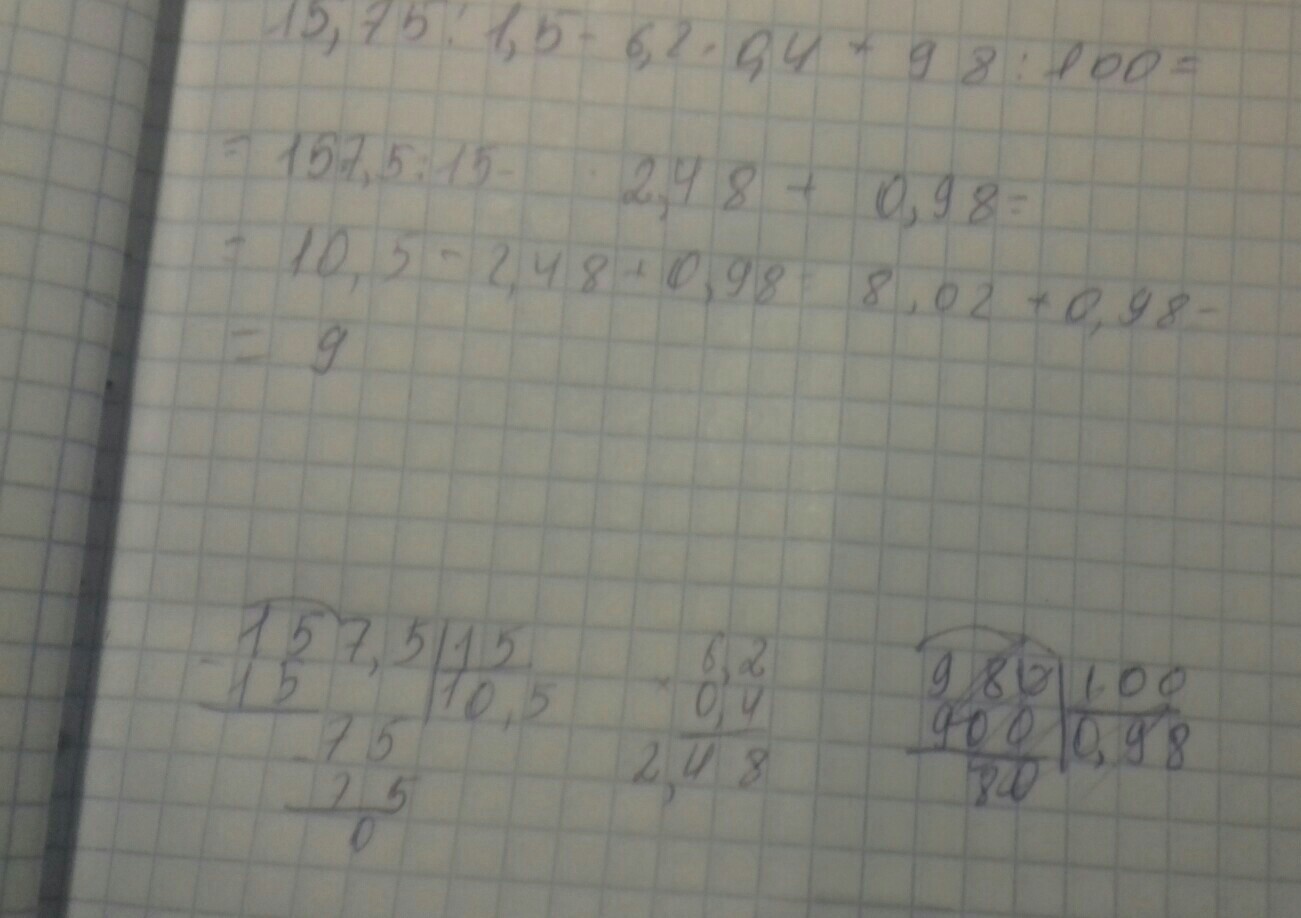 15,75:1,5-6,2·0,4+98:100=
=157,5:15- 2,48+0,98=
=10,5-2,48+0,98= 8,02+0,98-
=9
157,5|15
-15 |10,5
-75
75
0
6,2
×0,4
2,48
980|100
900|0,98
80